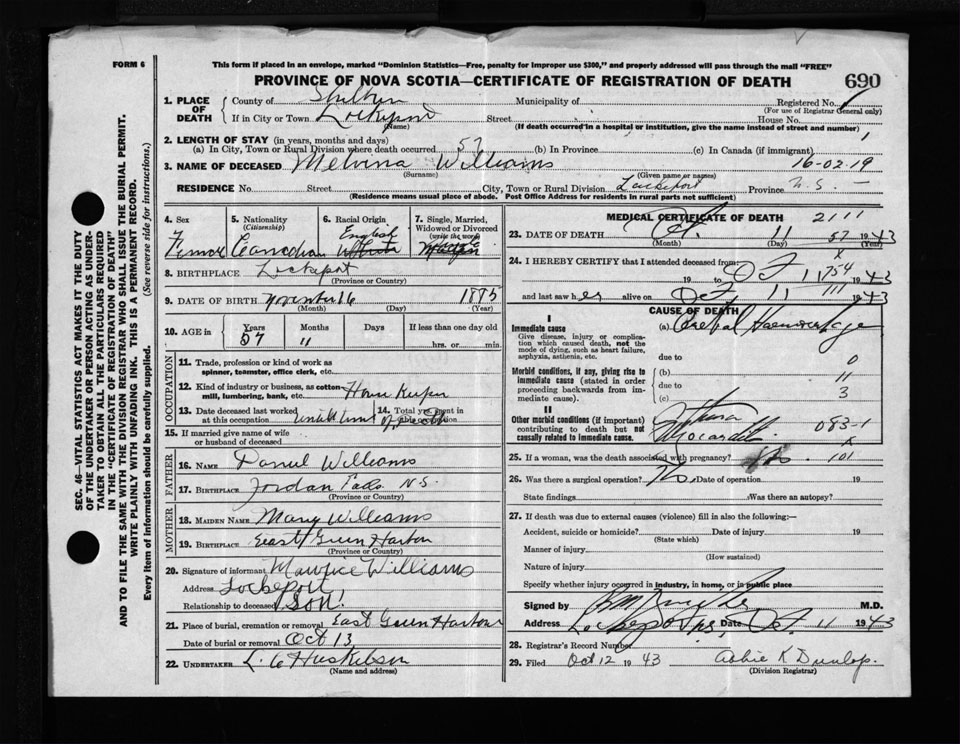 FORM 6
This form if placed in an envelope, marked "Dominion Statistics—Free, penalty for improper use $300," and properly addressed will pass through the mail "FREE"
PROVINCE OF NOVA SCOTIA—CERTIFICATE OF REGISTRATION OF DEATH 690
SEC. 46—VITAL STATISTICS ACT MAKES IT THE DUTY
OF THE UNDERTAKER OR PERSON ACTING AS UNDER-
TAKER TO OBTAIN ALL THE PARTICULARS REQUIRED
IN THE "CERTIFICATE OF REGISTRATION OF DEATH"
AND TO FILE THE SAME WITH THE DIVISION REGISTRAR WHO SHALL ISSUE THE BURIAL PERMIT.
WRITE PLAINLY WITH UNFADING INK. THIS IS A PERMANENT RECORD.
Every item of information should be carefully supplied. (See reverse side for instructions.)
1. PLACE OF DEATH
County of Municipality of Registered No.
(For use of Registrar General only)
If in City or Town Lockeport Street House No.
(Name) (If death occurred in a hospital or institution, give the name instead of street and number)
2. LENGTH OF STAY (in years, months and days)
(a) In City, Town or Rural Division where death occurred 57 (b) In Province (c) In Canada (if immigrant) 1
3. NAME OF DECEASED Melvina Williams 16-02-19
(Surname) (Given name or names)
RESIDENCE No. Street City, Town or Rural Division Lockeport Province N.S. —
(Residence means usual place of abode. Post Office Address for residents in rural parts not sufficient)
4. Sex 5. Nationality 6. Racial Origin 7. Single, Married,
(Citizenship) English Widowed or Divorced
(write the word)
Female Canadian
8. BIRTHPLACE Lockeport
(Province or Country)
9. DATE OF BIRTH November 16 1885
(Month) (Day) (Year)
10. AGE in Years Months Days If less than one day old
57 11 hrs. or min.
OCCUPATION
11. Trade, profession or kind of work as
spinner, teamster, office clerk, etc.
12. Kind of industry or business, as cotton-
mill, lumbering, bank, etc. House Keeper
13. Date deceased last worked 14. Total years spent in
at this occupation until time
15. If married give name of wife
or husband of deceased
FATHER
16. NAME Daniel Williams
17. BIRTHPLACE Jordan Falls N.S.
(Province or Country)
MOTHER
18. MAIDEN NAME Mary Williams
19. BIRTHPLACE East Green Harbor
(Province or Country)
20. Signature of informant Maurice Williams
Address Lockeport
Relationship to deceased Son!
21. Place of burial, cremation or removal East Green Harbour
Date of burial or removal Oct 13
22. UNDERTAKER L. C. Huskilson
(Name and address)
MEDICAL CERTIFICATE OF DEATH 2111
23. DATE OF DEATH Oct. 11 57 1943
(Month) (Day) (Year)
24. I HEREBY CERTIFY that I attended deceased from: x
19 to Oct 11 754 1943
and last saw her alive on Oct 11 111 1943
CAUSE OF DEATH
I
Immediate cause
Give disease, injury or complica-
tion which caused death, not the
mode of dying, such as heart failure,
asphyxia, asthenia, etc.
(a) Cerebral Haemorrhage
due to 0
Morbid conditions, if any, giving rise to
immediate cause (stated in order
proceeding backwards from im-
mediate cause).
(b) 11
due to
(c) 3
II
Other morbid conditions (if important)
contributing to death but not
causally related to immediate cause.
083-1
x
25. If a woman, was the death associated with pregnancy? No 101
26. Was there a surgical operation? No. Date of operation 19
State findings Was there an autopsy?
27. If death was due to external causes (violence) fill in also the following:—
Accident, suicide or homicide? Date of injury 19
(State which)
Manner of injury
(How sustained)
Nature of injury
Specify whether injury occurred in industry, in home, or in public place
Signed by M.D.
Address Lockeport N.S. Date Oct. 11 1943
28. Registrar's Record Number
29. Filed Oct 12 1943 Asbie K Dunlop.
(Division Registrar)